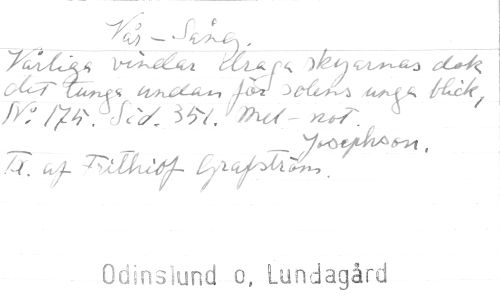 Vår-Sång.
Vårliga vindar draga skyarnas dok
det tunga undan för solens unga blick,
No. 175. Sid. 351. Mel-not.
Josephson.
Tx. af Frithiof Grafström.
Odinslund o, Lundagård